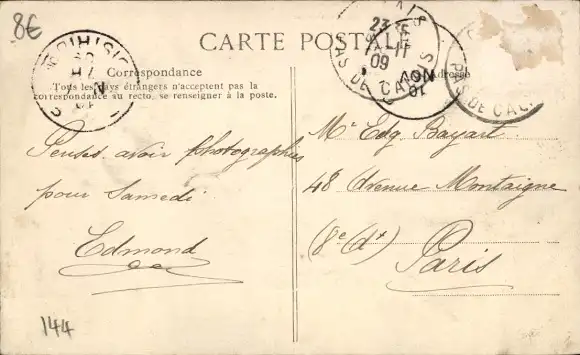 8€
CARTE POSTALE
Correspondance
Tous les pays étrangers n'acceptent pas la
correspondance au recto, se renseigner à la poste.
Adresse
23
11
09
PAS DE CALAIS
NOV
01
PAS DE CAL
Penses avoir photographies
pour Samedi
Edmond
Mr Edg Bayart
48 Avenue Montaigne
(8e dt)
Paris
144